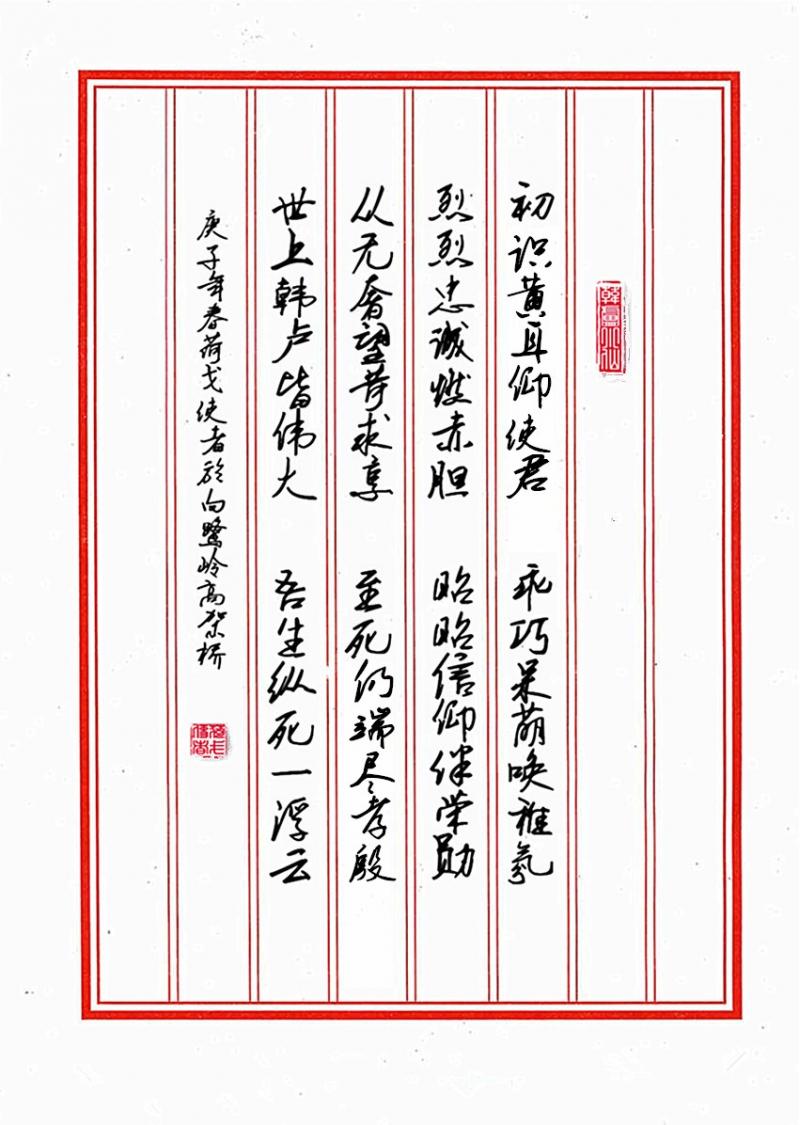 初识黄耳仰使君 乖巧呆萌唤稚氛
烈烈忠诚燃赤胆 昭昭信仰伴荣勋
从无奢望苛求享 至死仍端尽孝殷
世上韩卢皆伟大 吾生纵死一浮云
庚子年春荷戈使者於白鹭岭高架桥
荷戈使者